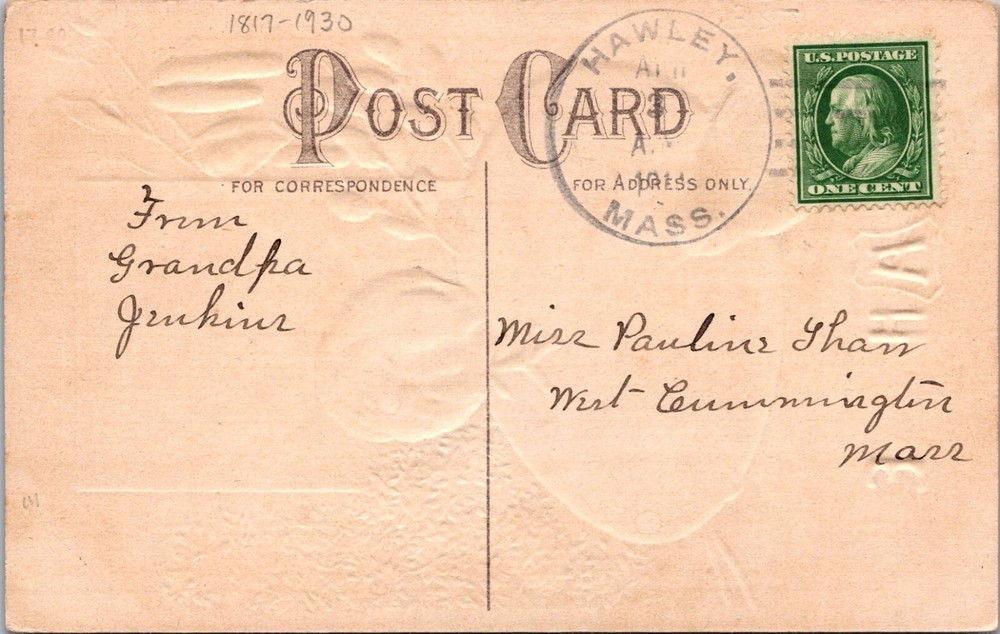 1817-1930
POST CARD
FOR CORRESPONDENCE
FOR ADDRESS ONLY.
HAWLEY,
3
A.
MASS.
U.S. POSTAGE
ONE CENT
From
Grandpa
Jenkins
Miss Pauline Shaw
West Cummington
Mass